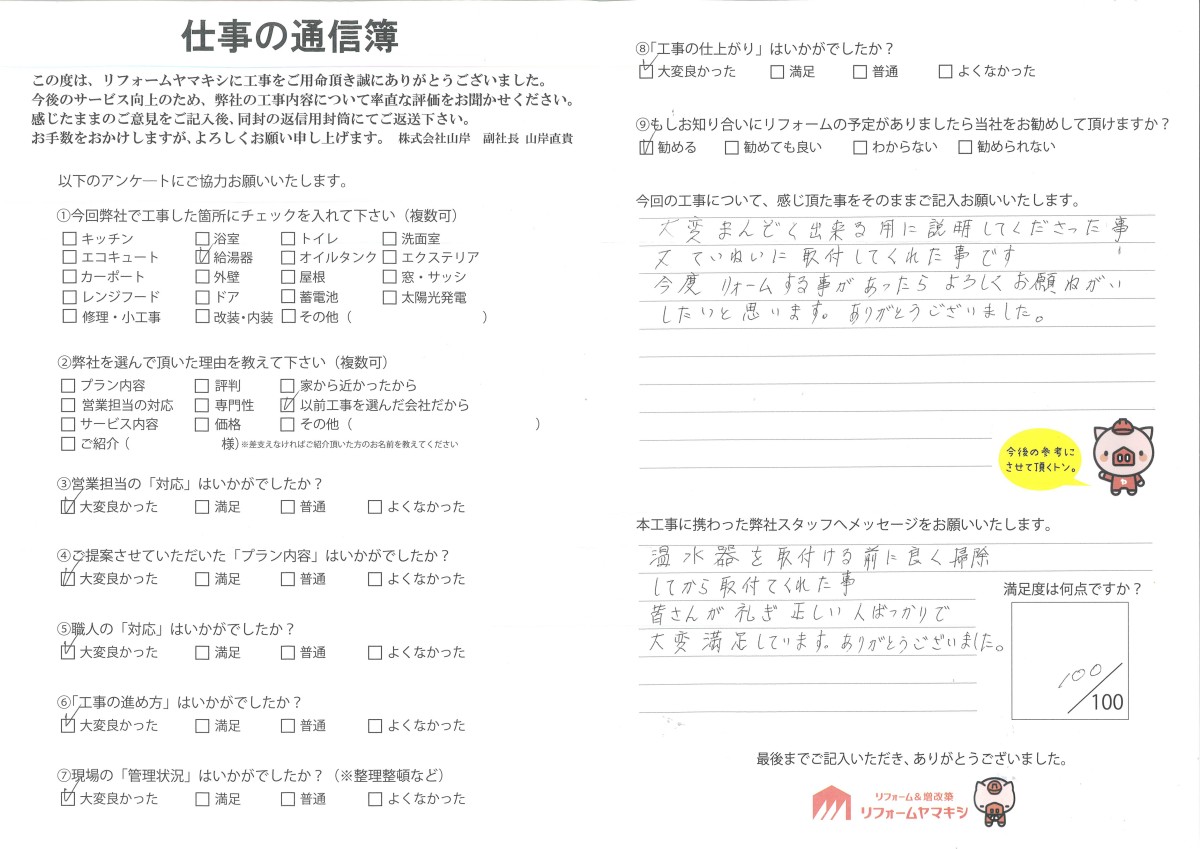 仕事の通信簿
この度は、リフォームヤマキシに工事をご用命頂き誠にありがとうございました。
今後のサービス向上のため、弊社の工事内容について率直な評価をお聞かせください。
感じたままのご意見をご記入後、同封の返信用封筒にてご返送下さい。
お手数をおかけしますが、よろしくお願い申し上げます。 株式会社山岸 副社長 山岸直貴
以下のアンケートにご協力お願いいたします。
①今回弊社で工事した箇所にチェックを入れて下さい（複数可）
□ キッチン □ 浴室 □ トイレ □ 洗面室
□ エコキュート ☑ 給湯器 □ オイルタンク □ エクステリア
□ カーポート □ 外壁 □ 屋根 □ 窓・サッシ
□ レンジフード □ ドア □ 蓄電池 □ 太陽光発電
□ 修理・小工事 □ 改装・内装 □ その他（ ）
②弊社を選んで頂いた理由を教えて下さい（複数可）
□ プラン内容 □ 評判 □ 家から近かったから
□ 営業担当の対応 □ 専門性 ☑ 以前工事を選んだ会社だから
□ サービス内容 □ 価格 □ その他（ ）
□ ご紹介（ 様）※差支えなければご紹介頂いた方のお名前を教えてください
③営業担当の「対応」はいかがでしたか？
☑ 大変良かった □ 満足 □ 普通 □ よくなかった
④ご提案させていただいた「プラン内容」はいかがでしたか？
☑ 大変良かった □ 満足 □ 普通 □ よくなかった
⑤職人の「対応」はいかがでしたか？
☑ 大変良かった □ 満足 □ 普通 □ よくなかった
⑥「工事の進め方」はいかがでしたか？
☑ 大変良かった □ 満足 □ 普通 □ よくなかった
⑦現場の「管理状況」はいかがでしたか？（※整理整頓など）
☑ 大変良かった □ 満足 □ 普通 □ よくなかった
⑧「工事の仕上がり」はいかがでしたか？
☑ 大変良かった □ 満足 □ 普通 □ よくなかった
⑨もしお知り合いにリフォームの予定がありましたら当社をお勧めして頂けますか？
☑ 勧める □ 勧めても良い □ わからない □ 勧められない
今回の工事について、感じ頂た事をそのままご記入お願いいたします。
大変まんぞく出来る用に説明してくださった事
又ていねいに取付してくれた事です
今度リォームする事があったらよろしくお願ねがい
したいと思います。ありがとうございました。
今後の参考に
させて頂くトン。
本工事に携わった弊社スタッフへメッセージをお願いいたします。
温水器を取付ける前に良く掃除
してから取付てくれた事
皆さんが礼ぎ正しい人ばっかりで
大変満足しています。ありがとうございました。
満足度は何点ですか？
100／100
最後までご記入いただき、ありがとうございました。
リフォーム&増改築
リフォームヤマキシ